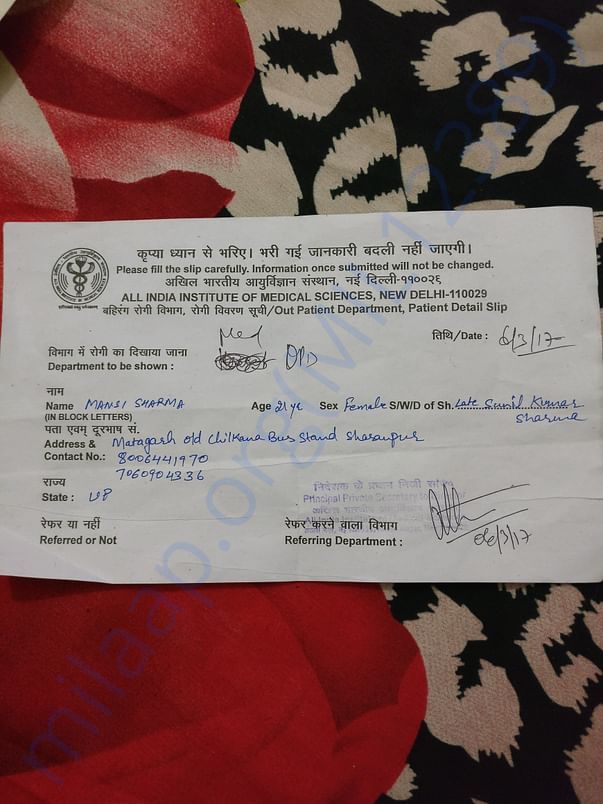 कृप्या ध्यान से भरिए। भरी गई जानकारी बदली नहीं जाएगी।
Please fill the slip carefully. Information once submitted will not be changed.
अखिल भारतीय आयुर्विज्ञान संस्थान, नई दिल्ली-११००२६
ALL INDIA INSTITUTE OF MEDICAL SCIENCES, NEW DELHI-110029
बहिरंग रोगी विभाग, रोगी विवरण सूची/Out Patient Department, Patient Detail Slip
Med
तिथि/Date : 6/3/17
विभाग में रोगी का दिखाया जाना
Department to be shown : OPD
नाम
Name MANSI SHARMA Age 21 yr Sex Female S/W/D of Sh. Late Sunil Kumar
(IN BLOCK LETTERS) Sharma
पता एवम् दूरभाष सं.
Address & Matagarh old Chilkana Bus Stand Sharanpur
Contact No.: 8006441970
7060904336
राज्य
State : UP
निदेशक के प्रधान निजी सचिव
Principal Private Secretary to
रेफर या नहीं
Referred or Not
रेफर करने वाला विभाग
Referring Department :
06/3/17
milaap.org